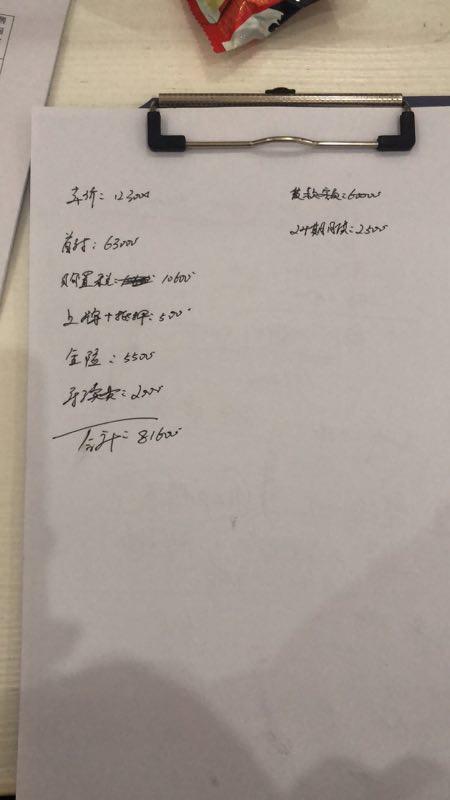 车价：123000
首付：63000
购置税： 10600
上牌+抵押：500
全险：5500
手续费：2000
合计：81600
贷款金额：60000
24期月供：2500